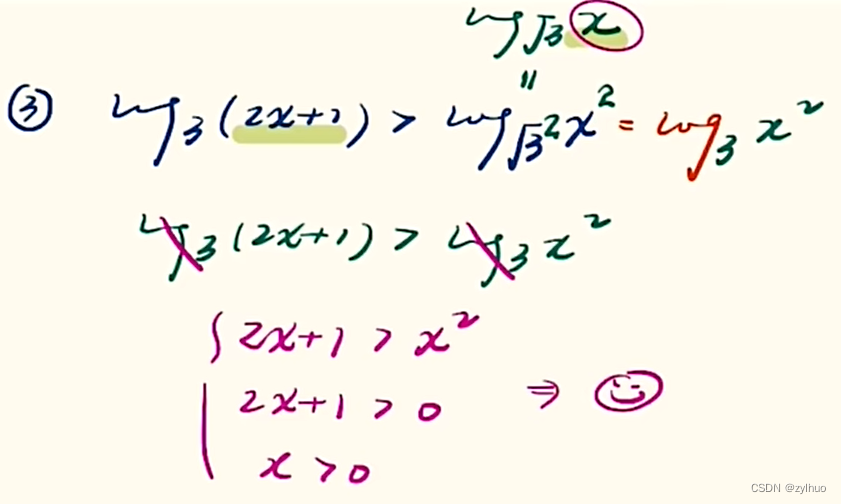 log√3 x
॥
③ log₃(2x+1) > log√3² x² = log₃ x²
log₃(2x+1) > log₃ x²
{ 2x+1 > x²
2x+1 > 0 ⇒ ☺
x > 0
CSDN @zylhuo